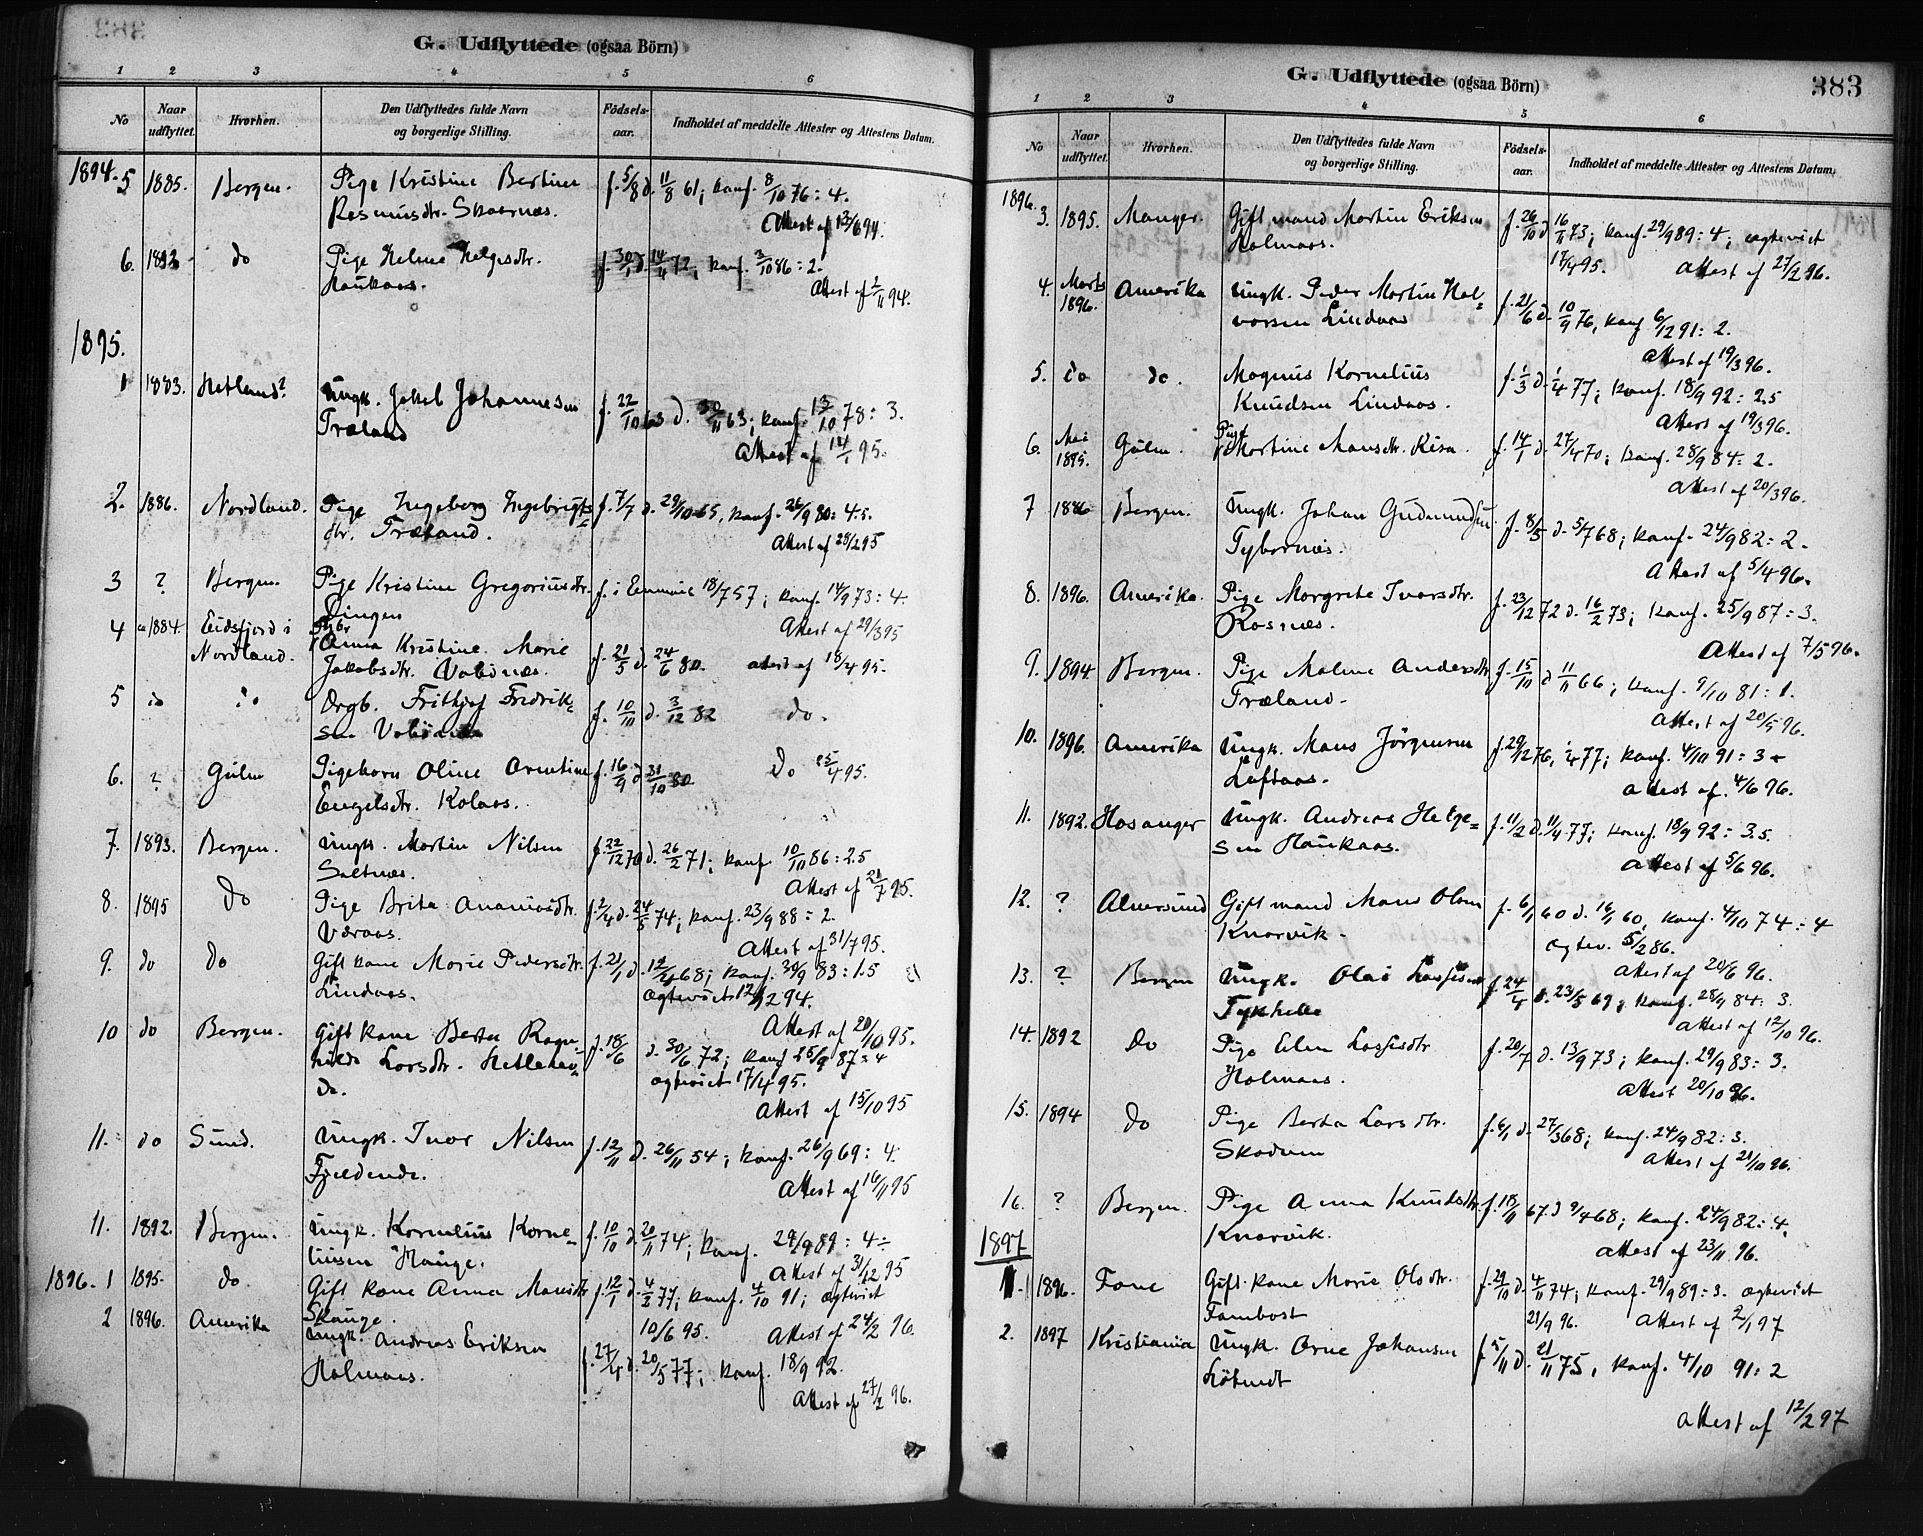 G. Udflyttede (ogsaa Börn)
1 2 3 4 5 6
No
Naar udflyttet.
Hvorhen.
Den Udflyttedes fulde Navn og borgerlige Stilling.
Födsels-aar.
Indholdet af meddelte Attester og Attestens Datum.
1894. 5 1885. Bergen. Pige Kristine Bertine f. 5/8 d. 11/8 61; konf. 8/10 76: 4.
Rasmusdtr. Skaarnæs. Attest af 13/6 94.
6. 1892 do Pige Helene Helgesdtr. f. 30/1 d. 14/4 72; konf. 3/10 86: 2.
Haukaas. Attest af 2/11 94.
1895.
1 1883. Hetland? Ungk. Jakob Johannesen f. 22/10 63 d. 30/11 63; konf. 13/10 78: 3.
Træland Attest af 14/1 95.
2. 1886. Nordland. Pige Ingeborg Ingebrigts= f. 7/7 d. 29/10 65, konf. 26/9 80: 4.5.
dtr. Træland. Attest af 28/2 95
3 ? Bergen. Pige Kristine Gregoriusdtr. f. i Evenvic 18/7 57; konf. 14/9 73: 4.
Dingen Attest af 29/3 95
4 ca 1884. Eidsfjord i Pigebr
Nordland. Anna Kristine Marie
Jakobsdtr. Valdnæs. f. 21/5 d. 24/6 80. attest af 18/4 95.
5 do do Drgb. Frithjof Fredrik= f. 10/11 d. 3/12 82 do.
sen
6. ? Gulen Pigebarn Oline f. 16/9 d. 31/10 80 Do 25/4 95.
Engelsdtr. Kolaas.
7. 1893. Bergen. Ungk. Martin Nilsen f. 22/12 70 d. 26/2 71; konf. 10/11 86: 2.5
Saltnæs. Attest af 21/7 95.
8. 1895 Do Pige Brita Ananiasdtr. f. 2/4 d. 24/5 74; konf. 23/9 88: 2.
Væraas. Attest af 31/7 95.
9. do Do Gift kone Marie Pedersdtr. f. 21/1 d. 12/4 68; konf. 30/9 83: 1.5
Lindaas. ægteviet 12/12 94.
Attest af 20/10 95.
10 do Bergen. Gift kone Berta Ragn=
hilda Larsdtr. Hetlehei= f. 18/6 d. 30/6 72; konf 25/9 87: 4
da. ægteviet 17/4 95.
Attest af 15/10 95
11. do Sund. Ungk. Ivar Nilsen f. 12/11 d. 26/11 54; konf. 26/9 69: 4.
Fjeldende. Attest af 16/11 95
11. 1892. Bergen. Ungk. Kornelius Korne= f. 10/10 d. 20/11 74; konf. 29/9 89: 4÷
liusen Hauge. Attest af 31/12 95
1896. 1 1895. do. Gift kone Anna Monsdtr f. 12/1 d. 4/2 77; konf. 4/10 91; ægteviet
Skauge. 10/6 95. Attest af 24/2 96.
2 1896. Amerika Ungk. Andreas Eriksen f. 27/4 d. 20/5 77; konf. 18/9 92.
Holmaas. Attest af 27/2 96.
G. Udflyttede (ogsaa Börn) 383
1 2 3 4 5 6
No
Naar udflyttet.
Hvorhen.
Den Udflyttedes fulde Navn og borgerlige Stilling.
Födsels-aar.
Indholdet af meddelte Attester og Attestens Datum.
1896. 3. 1895. Manger. Gift mand Martin Eriksen f. 26/10 d 16/11 73; konf. 29/9 89: 4; ægteviet
Holmaas. 17/4 95. Attest af 27/2 96.
4. Marts 1896. Amerika Ungk. Peder Martin Hal=
vorsen Lindaas f. 21/6 d. 10/9 76, konf 6/12 91: 2.
Attest af 19/3 96.
5. do do. Magnus Kornelius f. 1/3 d. 1/4 77; konf. 18/9 92: 2.5
Knudsen Lindaas. Attest af 19/3 96.
6. Mai 1895. Gulen. Pige Martine Monsdtr. Risa. f. 14/1 d. 27/4 70; konf. 28/9 84: 2.
Attest af 20/3 96.
7 1886 Bergen. Ungk. Johan Gudmundsen f. 8/5 d. 5/7 68; konf. 24/9 82: 2.
Attest af 5/4 96.
8. 1896. Amerika. Pige Margrete Ivarsdtr. f. 23/12 72 d. 16/2 73; konf. 25/9 87: 3.
Rosnæs. Attest af 7/5 96.
9. 1894. Bergen. Pige Malene Andersdtr f. 15/10 d 11/11 66; konf. 9/10 81: 1.
Træland. Attest af 20/5 96.
10. 1896. Amerika Ungk. Mons Jörgensen f. 29/12 76, 1/4 77; konf. 4/10 91: 3÷
Loftaas. Attest af 4/6 96.
11. 1892. Hosanger Ungk. Andreas Helge= f. 11/2 d. 11/4 77; konf. 18/9 92: 3.5.
sen Haukaas. Attest af 5/6 96.
12. ? Alversund Gift mand Mons Olsen f. 6/1 60 d. 16/1 60, konf. 4/10 74: 4
Knarvik. ægtev. 5/2 86.
Attest af 20/6 96.
13. ? Bergen Ungk. Olai Lassesen f. 24/4 d. 23/5 69; konf. 28/9 84: 3.
Tykhelle Attest af 12/10 96.
14. 1892 Do Pige Elen Lassesdtr f. 20/7 d. 13/9 73; konf. 29/9 83: 3.
Holmaas. Attest 20/10 96.
15. 1894 Do Pige Berta Larsdtr. f. 6/1 d. 27/3 68; konf. 24/9 82: 3.
Skodven Attest af 21/10 96.
16. ? Bergen. Pige Anna Knudsdtr. f. 18/11 67. d 9/4 68; konf. 24/9 82: 4.
Knarvik. Attest af 23/11 96.
1897
1 1896. Fane Gift kone Marie Olsdtr. f. 21/10 d. 4/11 74; konf. 29/9 89: 3. ægteviet
Fambost 21/9 96. Attest af 2/1 97
2. 1897 Kristiania Ungk. Arne Johansen f 5/11 d. 21/11 75, konf. 4/10 91: 2
Attest af 12/2 97